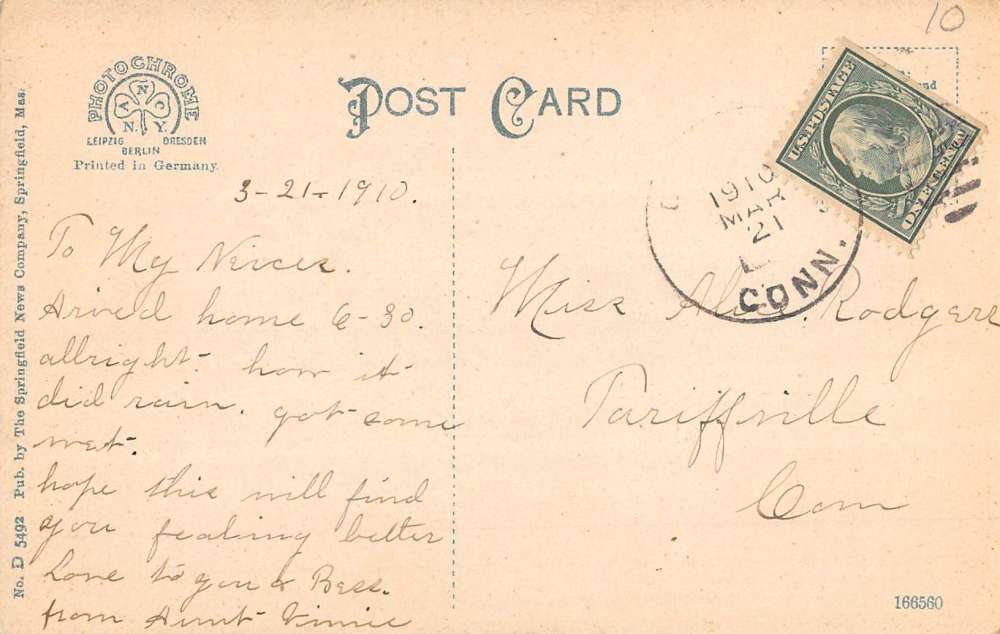 10
PHOTOCHROME
A N O
N. Y.
LEIPZIG DRESDEN
BERLIN
Printed in Germany.
POST CARD
U.S. POSTAGE
1910
MAR
21
CONN.
3-21-1910.
To My Neices.
Arived home 6-30.
allright. how it
did rain. got some
wet.
hope this will find
you fealing better
Love to you & Bess.
from Aunt Vinnie
Miss Alice Rodgers
Tariffville
Conn
No. D 5492 Pub. by The Springfield News Company, Springfield, Mas.
166560